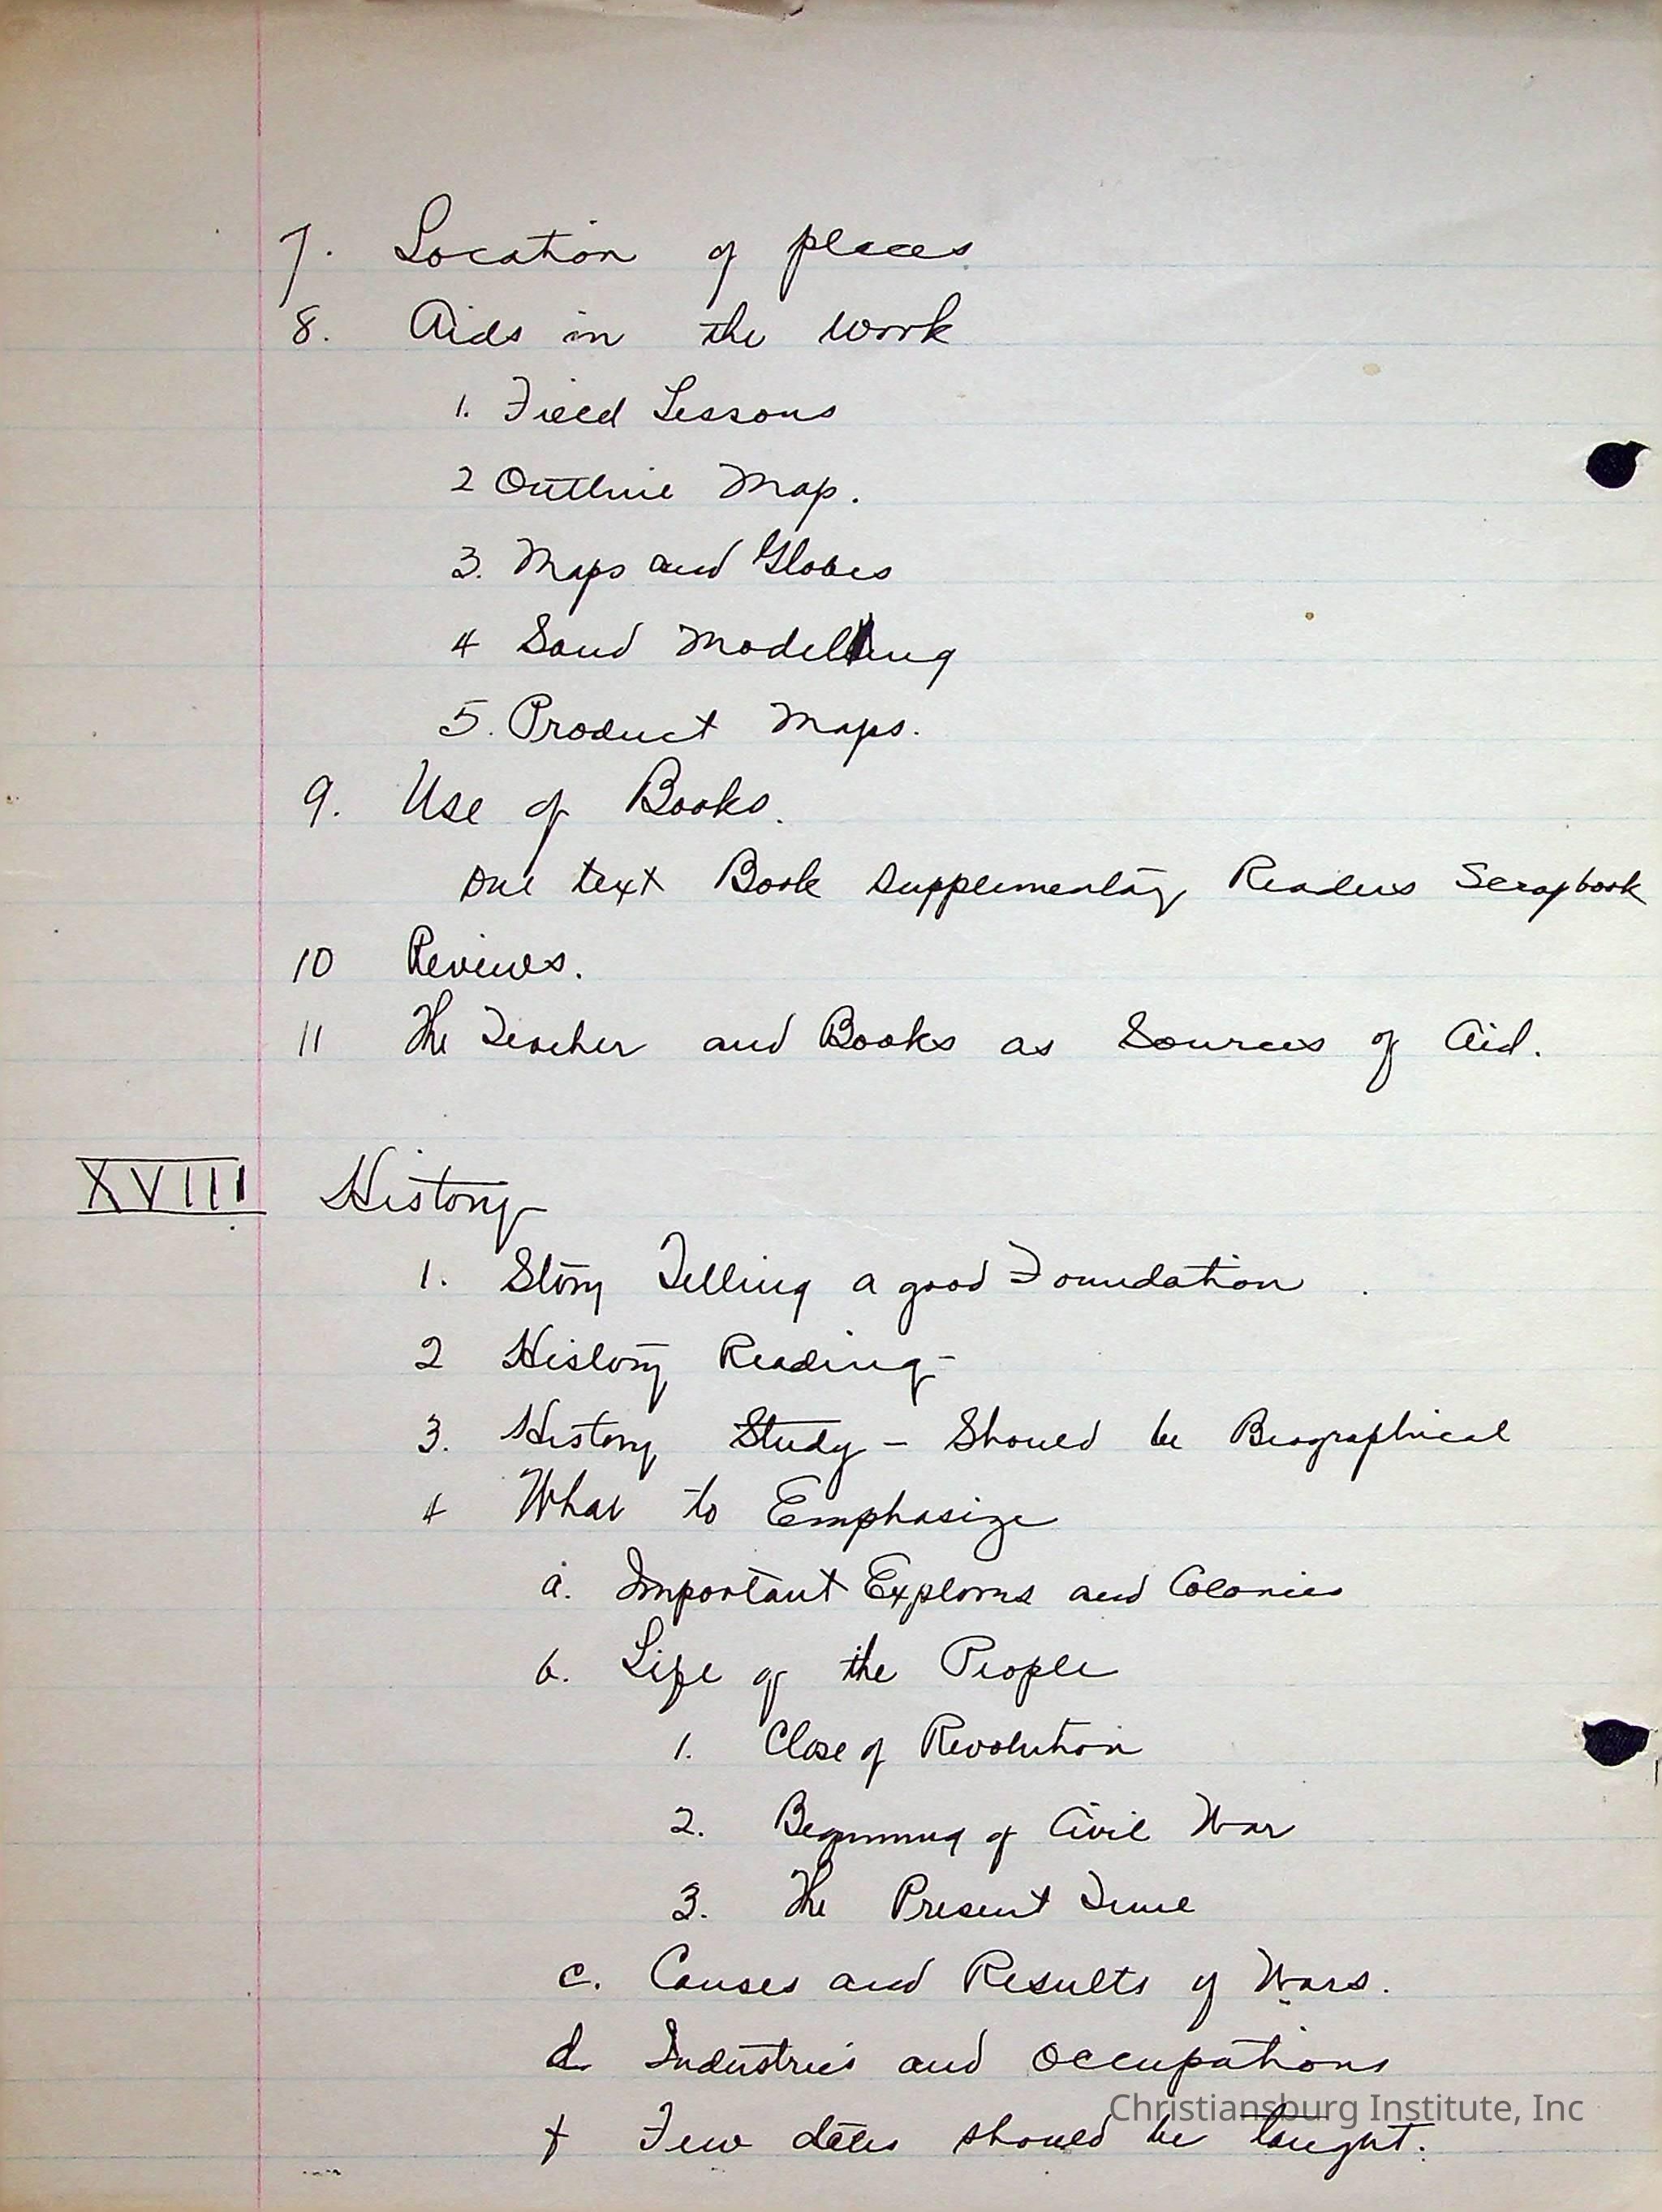 7. Location of places
8. Aids in the work
1. Field Lessons
2 Outline Map.
3. Maps and Globes
4 Sand Modelling
5. Product Maps.
9. Use of Books.
One text Book Supplementary Readers Scrapbook
10 Reviews.
11 The Teacher and Books as Sources of Aid.
XVIII History
1. Story Telling a good Foundation.
2 History Reading-
3. History Study - Should be Biographical
4 What to Emphasize
a. Important Explorers and Colonies
b. Life of the People
1. Close of Revolution
2. Beginning of Civil War
3. The Present Time
c. Causes and Results of Wars.
d Industries and Occupations
Christiansburg Institute, Inc
f Few dates should be taught.